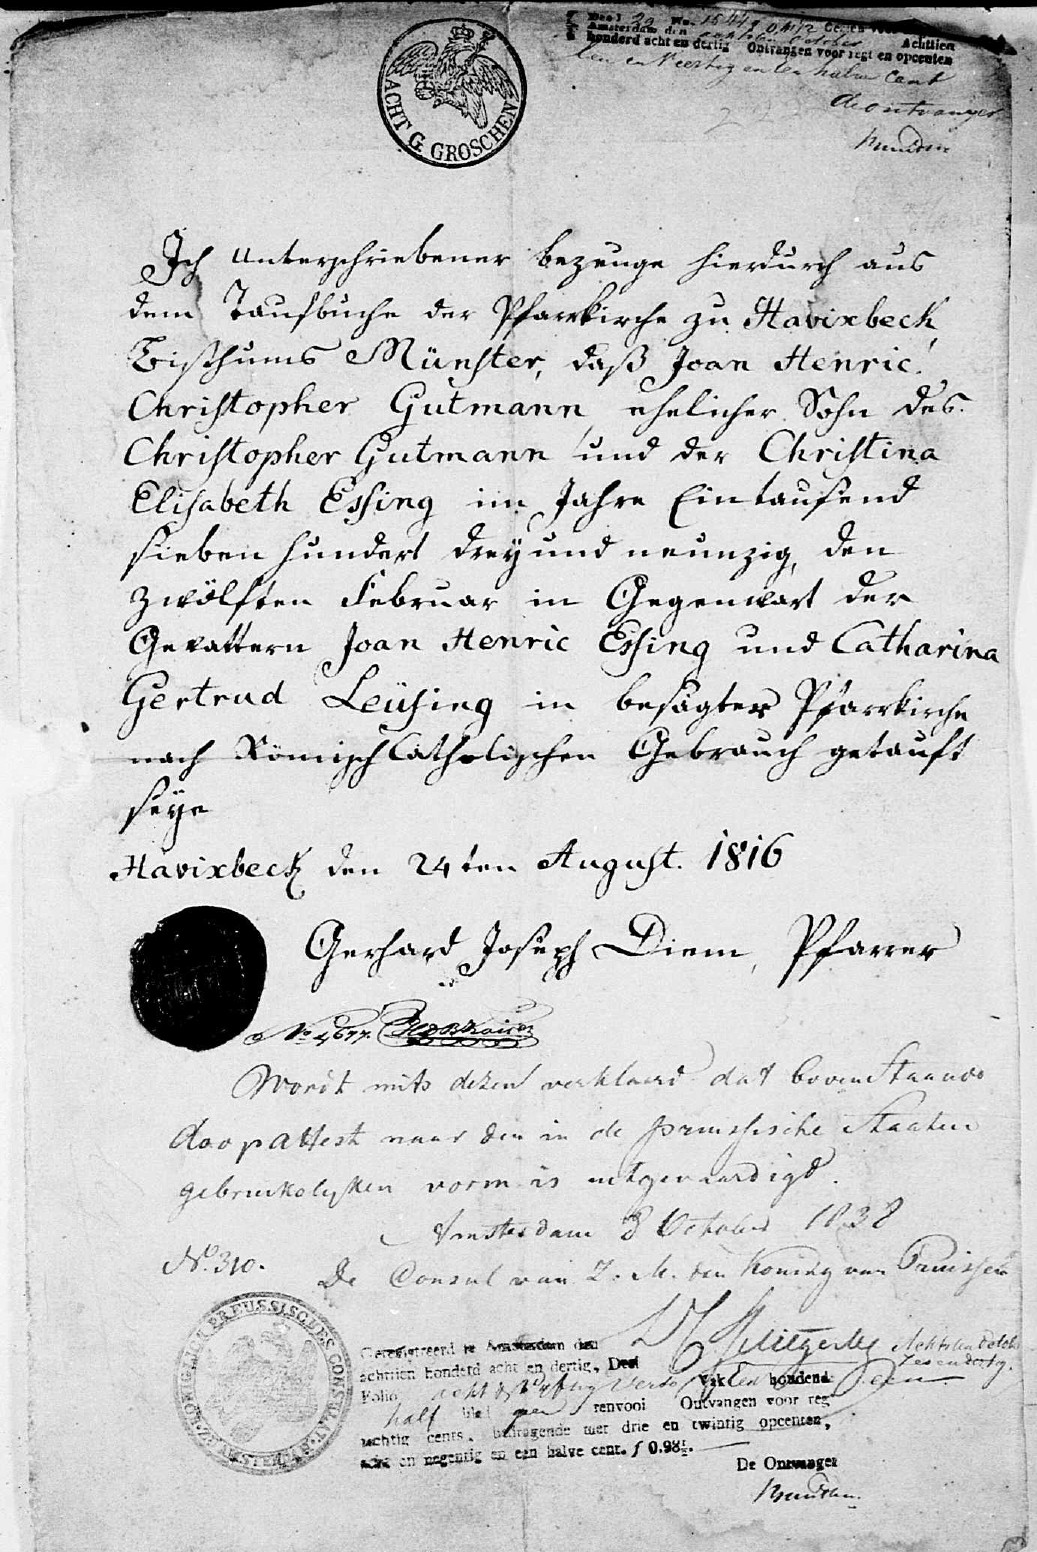 ACHT G. GROSCHEN
Deel 39 No. 1544
Amsterdam den October Achttien
honderd acht en dertig Ontvangen voor regt en opcenten
een en Veertig en een halve Cent
de ontvanger
Ich Unterschriebener bezeuge hierdurch aus
dem Taufbuche der Pfarrkirche zu Havixbeck,
Bisthums Münster, daß Joan Henric
Christopher Gutmann, ehelicher Sohn des
Christopher Gutmann und der Christina
Elisabeth Essing im Jahre Eintausend
sieben hundert drey und neunzig, den
zwölften Februar in Gegenwart der
Gevattern Joan Henric Essing und Catharina
Gertrud Leüsing in besagter Pfarrkirche
nach Römisch Catholischen Gebrauch getauft
seye
Havixbeck den 24ten August. 1816
Gerhard Joseph Diem, Pfarrer
No 4677.
Wordt mits dezen verklaard dat bovenstaande
doopattest naar den in de pruissische Staaten
gebruikelyken vorm is uitgevaardigd.
Amsterdam 8 October 1838
No. 310.
De Consul van Z. M. den Koning van Pruissen
PREUSSISCHES CONSULAT ZU AMSTERDAM
Geregistreerd te Amsterdam den Achtsten October
achttien honderd acht en dertig, Deel Zes en dertig.
Folio acht en vyftig Verso Vak Een houdende Een
half blad geen renvooi Ontvangen voor regt
tachtig cents, bedragende met drie en twintig opcenten,
acht en negentig en een halve cent. f 0.98½.
De Ontvanger